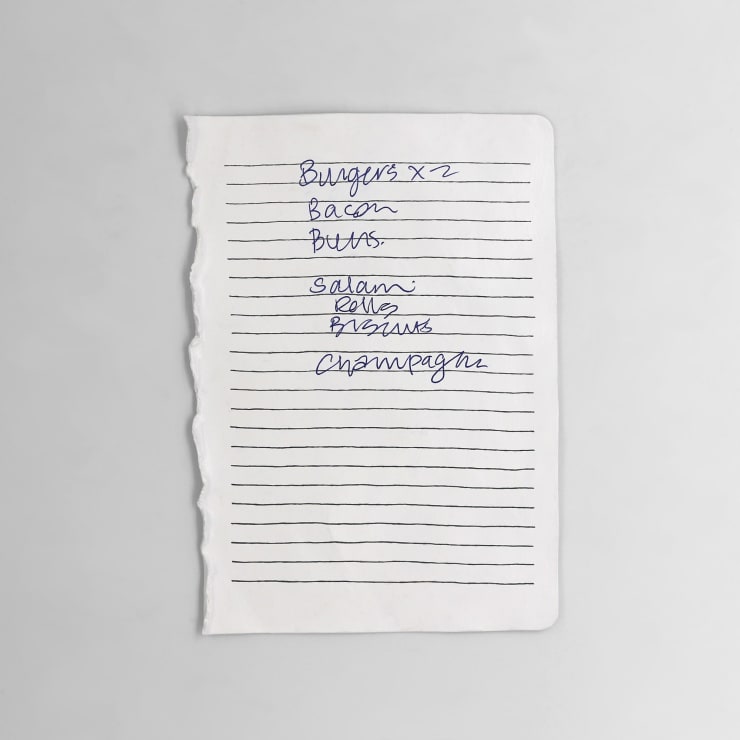 Burgers x 2
Bacon
Buns.
Salami
Rolls
Biscuits
Champagne